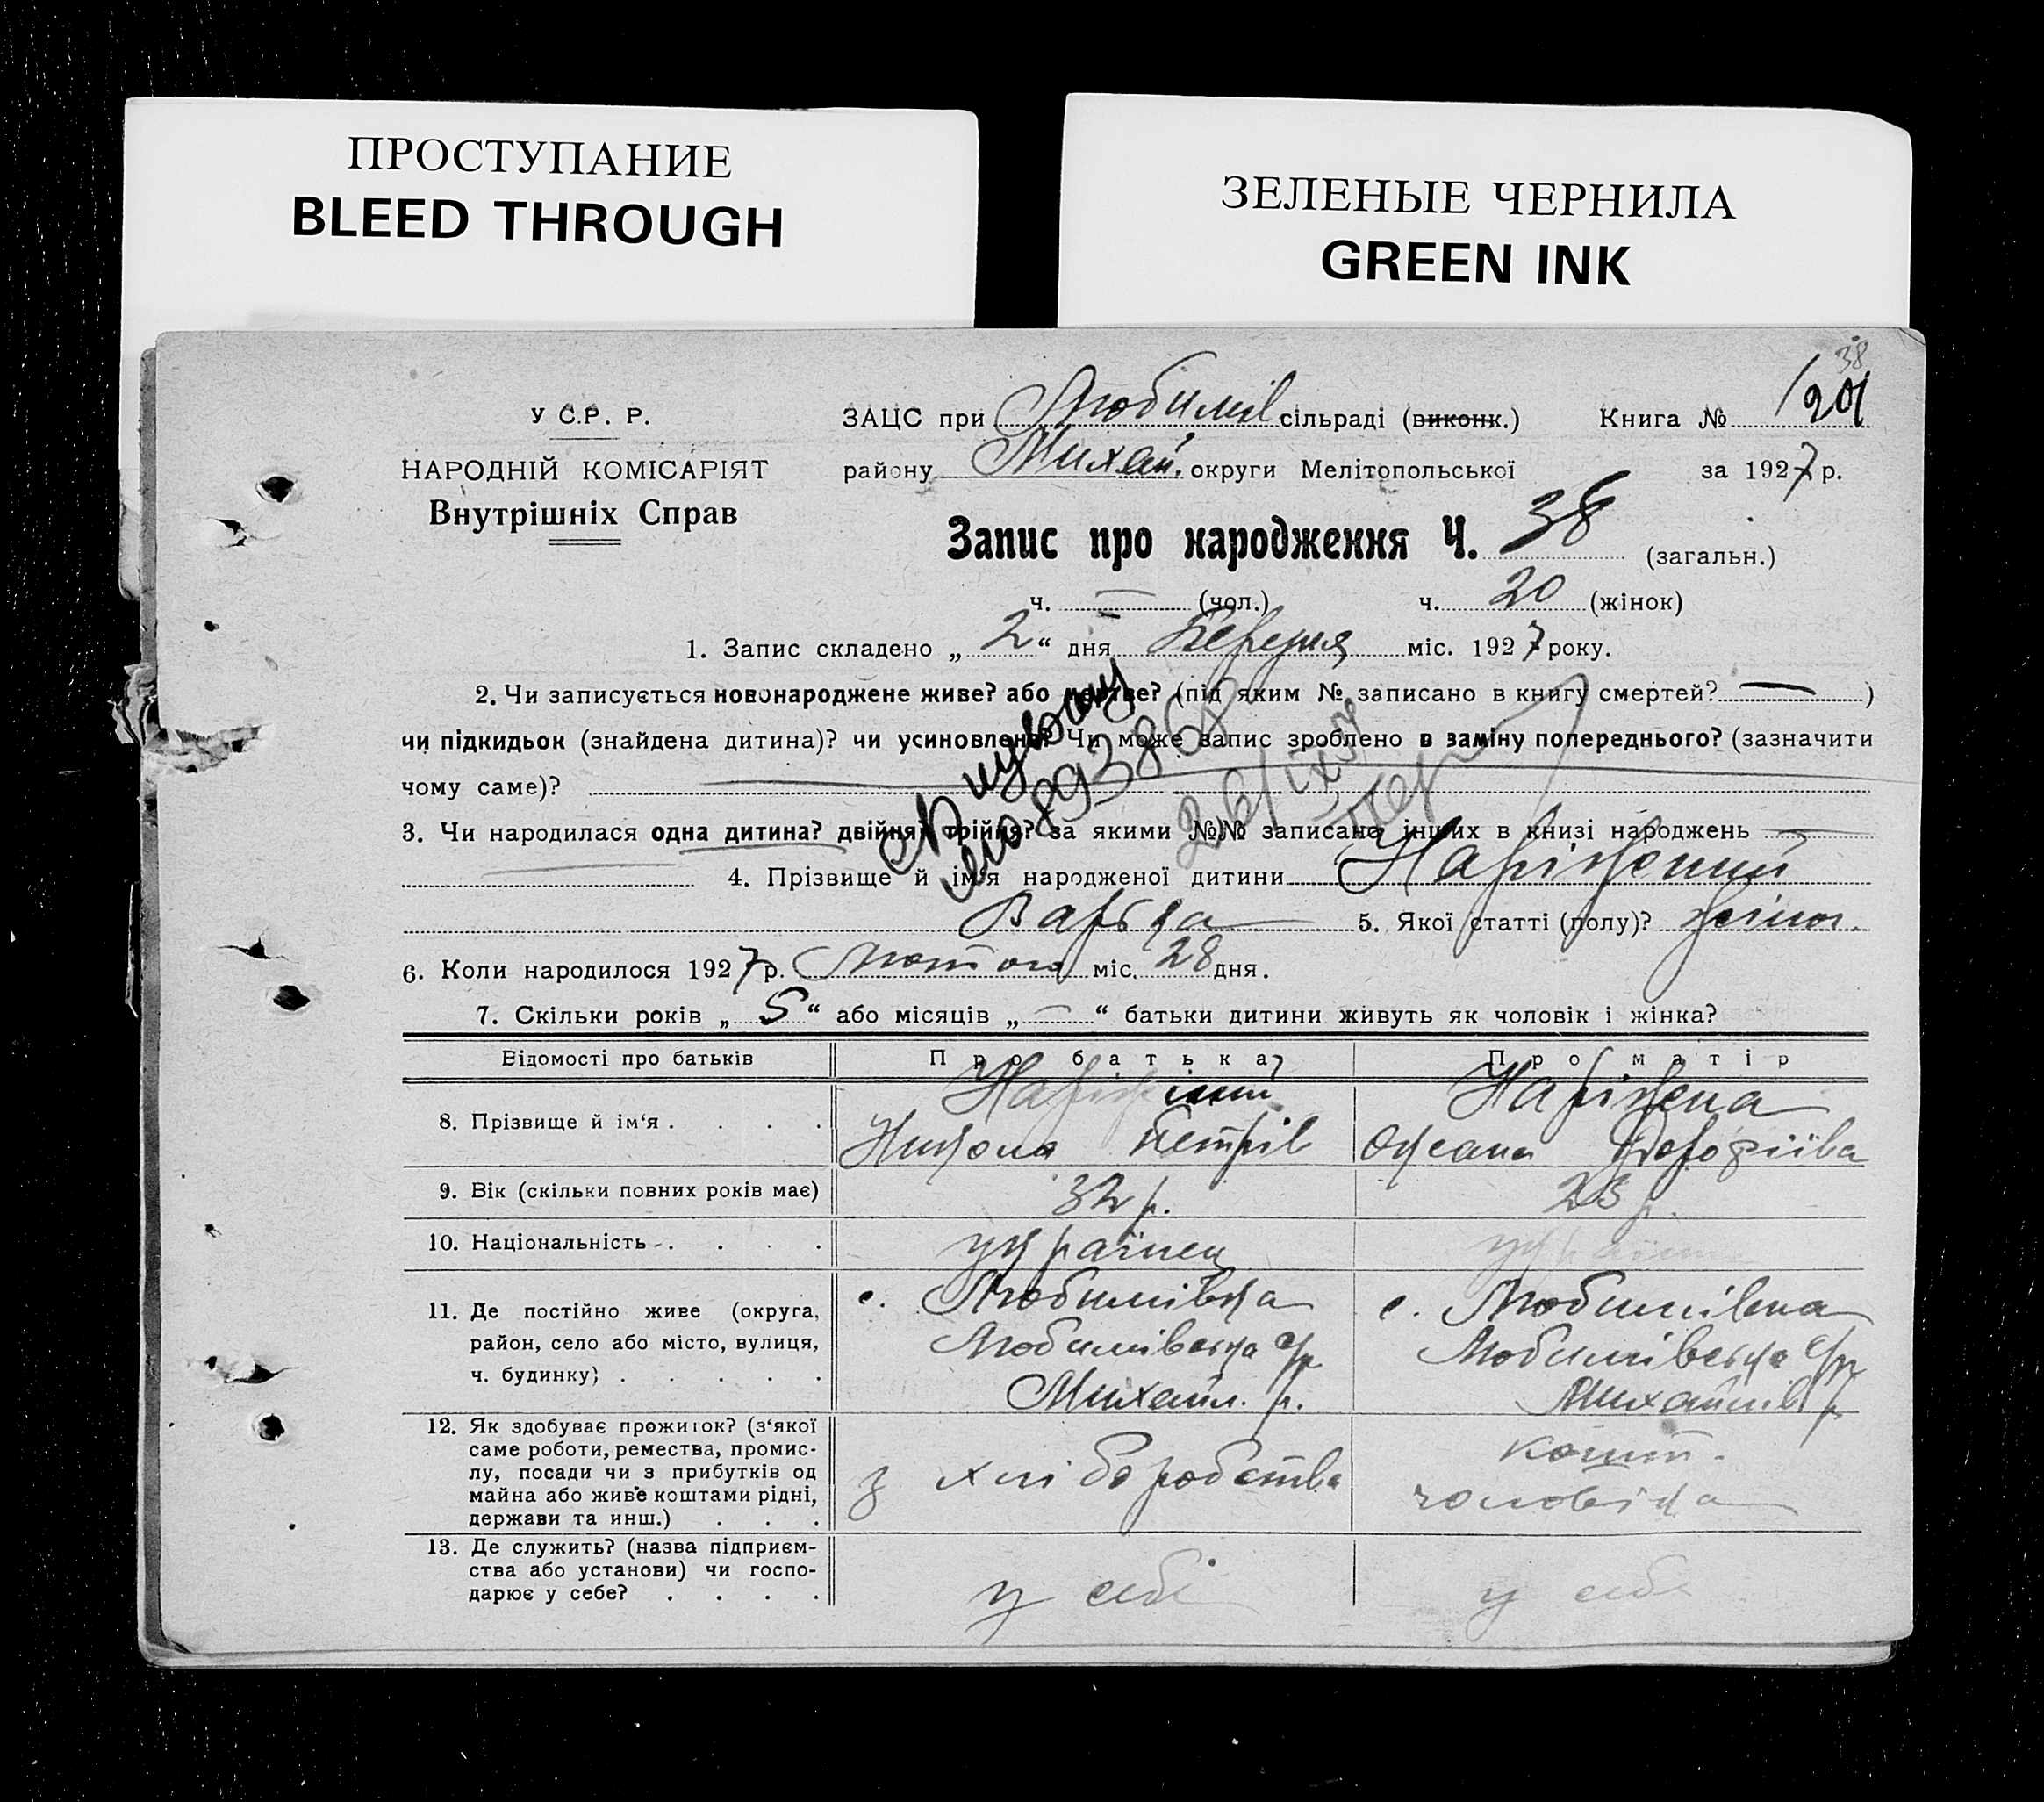 ПРОСТУПАНИЕ
BLEED THROUGH
ЗЕЛЕНЫЕ ЧЕРНИЛА
GREEN INK
38
У С.Р. Р.
ЗАЦС при Любимів сільраді (виконк.) Книга № 201
НАРОДНІЙ КОМІСАРІЯТ
району Михай. округи Мелітопольської за 1927 р.
Внутрішніх Справ
Запис про народження Ч. 38 (загальн.)
ч. — (чол.) ч. 20 (жінок)
1. Запис складено „ 2 “ дня Березня міс. 1927 року.
2. Чи записується новонароджене живе? або мертве? (під яким № записано в книгу смертей? — )
чи підкидьок (знайдена дитина)? чи усиновлено? Чи може запис зроблено в заміну попереднього? (зазначити
чому саме)?
3. Чи народилася одна дитина? двійня? трійня? за якими №№ записано інших в книзі народжень —
4. Прізвище й ім'я народженої дитини Наріжний
Варька 5. Якої статті (полу)? жіноч.
6. Коли народилося 1927 р. Лютого міс. 28 дня.
7. Скільки років „ 5 “ або місяців „ — “ батьки дитини живуть як чоловік і жінка?
Відомості про батьків Про батька Про матір
8. Прізвище й ім'я . . . .
Наріжний
Микола Петрів
Наріжена
Оксана Дорофіїва
9. Вік (скільки повних років має) 32 р. 23 р.
10. Національність . . . . українец українка
11. Де постійно живе (округа,
район, село або місто, вулиця,
ч. будинку) . . . . .
с. Любимівка
Любимівська с/р
Михайл. р.
с. Любимівка
Любимівська с/р
Михайлів р.
12. Як здобуває прожиток? (з'якої
саме роботи, ремества, промис-
лу, посади чи з прибутків од
майна або живе коштами рідні,
держави та инш.) . . .
з хліборобства
кошт.
чоловіка
13. Де служить? (назва підприєм-
ства або установи) чи госпо-
дарює у себе? . . . .
у себі
у себе